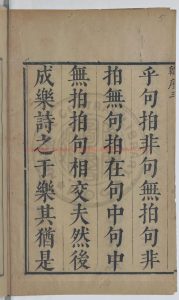 乎句拍非句無拍句非
拍無句拍在句中句中
無拍拍句相交夫然後
成樂詩之于樂其猶是